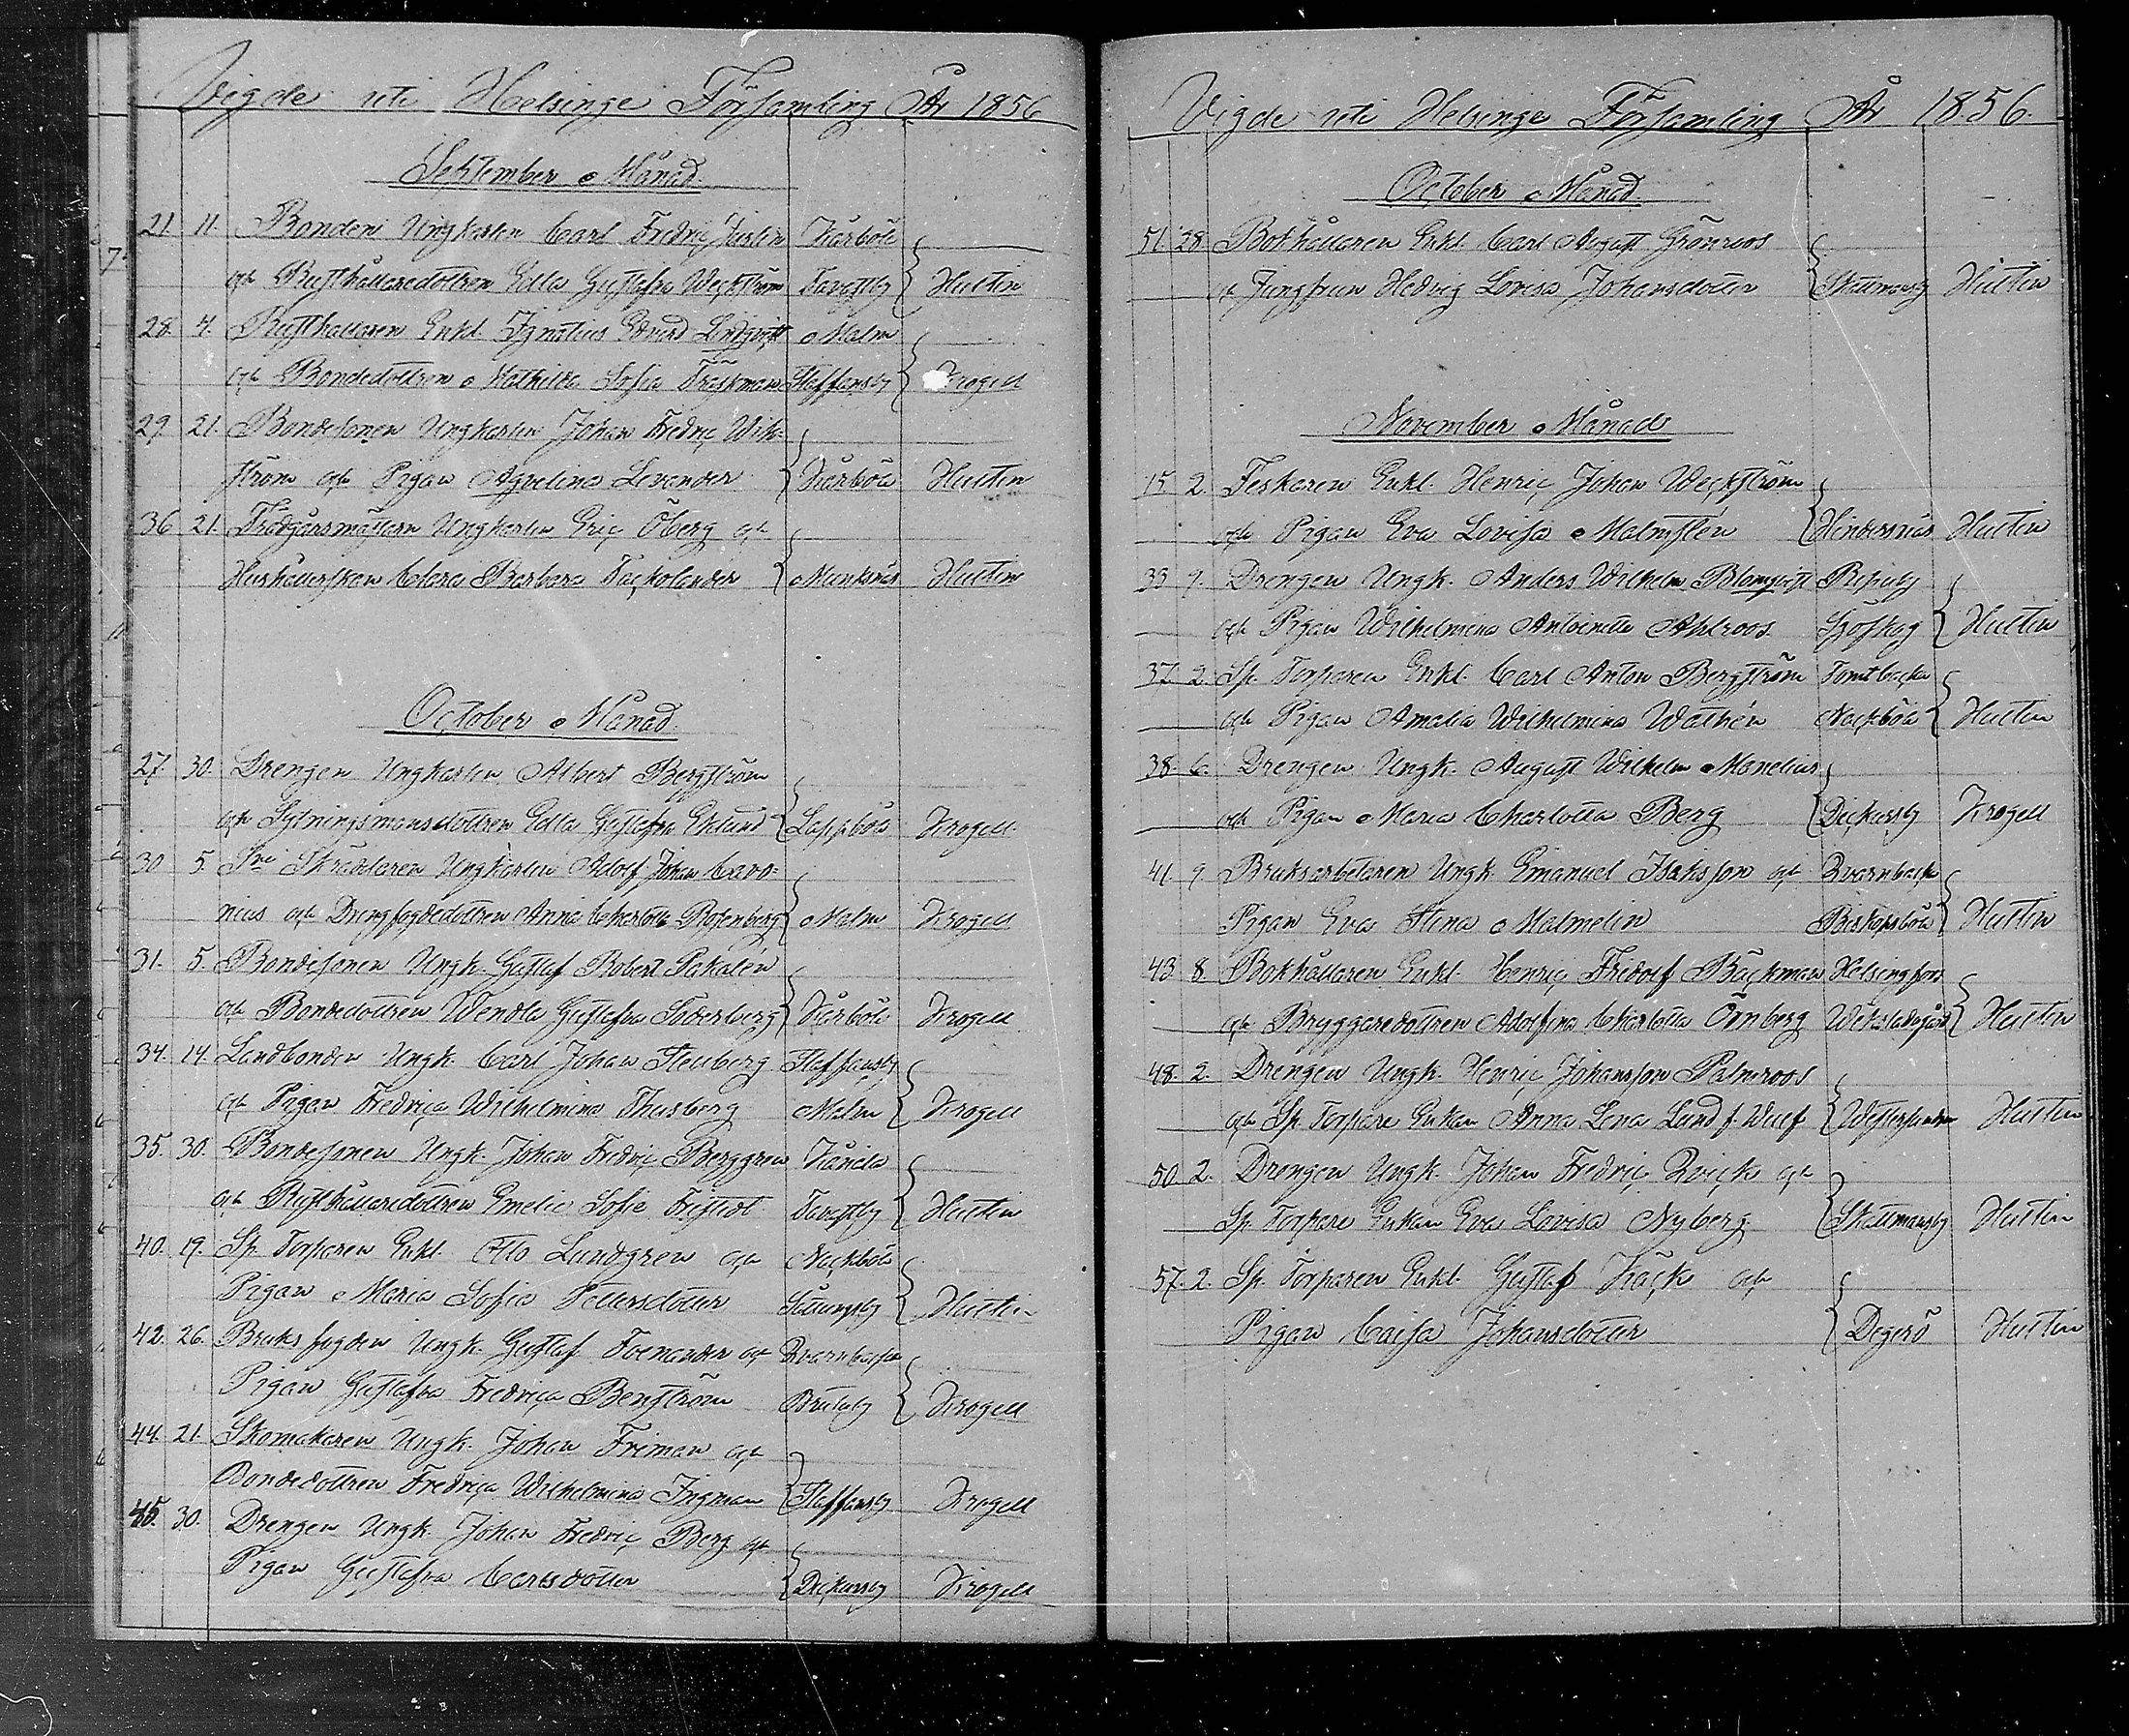 Vigde uti Helsinge Församling År 1856
September Månad.
21. 11. Bonden Ungkarlen Carl Fredric Juslin Kårböle
och Rusthållaredottren Edla Gustafva Weckström Tavastby Hultin
28. 4. Rusthållaren Enkl. Ignatius Edvard Lindqvist Malm
och Bondedottren Mathilda Sofia Träskman Staffansby Krogell
29. 21. Bondesonen Ungkarlen Johan Fredric Wik-
ström och Pigan Agvelina Levander Kårböle Hultin
36. 21. Trädgårsmästarn Ungkarlen Eric Öberg och
Hushållerskan Clara Barbara Tackolander Munksnäs Hultin
October Månad.
27. 30. Drengen Ungkarlen Albert Bergström
och Sytningsmansdottren Edla Gustafva Eklund Lappböle Krogell
30. 5. Skräddaren Ungkarlen Adolf Johan Cavo=
nius och Drengfogdedottren Anna Charlotta Rosenberg Malm Krogell
31. 5. Bondesonen Ungk. Gustaf Robert Sakalén
och Bondedottren Wendla Gustafva Söderberg Kårböle Krogell
34. 14. Landbonden Ungk. Carl Johan Stenberg Staffansby
och Pigan Fredrica Wilhelmina Thusberg Malm Krogell
35. 30. Bondesonen Ungk. Johan Fredric Berggren Kånala
och Rusthållaredottren Emelie Sofie Fristedt Tavastby Hultin
40. 19. Sp. Torparen Enkl. Otto Lundgren och Nackböle
Pigan Maria Sofia Pettersdotter Hultin
42. 26. Bruks fogden Ungk. Gustaf Fornander och Qvarnbacka
Pigan Gustafva Fredrica Benström Brutuby Krogell
44. 21. Skomakaren Ungk. Johan Friman och
Bondedottren Fredrica Wilhelmina Ingman Staffansby Krogell
45. 30. Drengen Ungk. Johan Fredric Berg och
Pigan Gustafva Carlsdotter Dickursby Krogell
Vigde uti Helsinge Församling År 1856.
October Månad.
51. 28. Bokhållaren Enkl. Carl August Grönroos
och Jungfrun Hedvig Lovisa Johansdotter Skattmansby Hultin
November Månad
15. 2. Feskaren Enkl. Henric Johan Weckström
och Pigan Eva Lovisa Malmstén Hindersnäs Hultin
33. 9. Drengen Ungk. Anders Wilhelm Blomqvist Ripuby
och Pigan Wilhelmina Antoinetta Ahlroos Sjöskog Hultin
37. 2. Sp. Torparen Enkl. Carl Anton Bergström Tomtbacka
och Pigan Amalia Wilhelmina Wathén Nackböle Hultin
38. 6. Drengen Ungk. August Wilhelm Manelius
och Pigan Maria Charlotta Berg Dickursby Krogell
41. 9. Bruksarbetaren Ungk. Emanuel Isaksson och Qvarnbacka
Pigan Eva Stina Malmelin Biskopsböle Hultin
43. 8. Bokhållaren Enkl. Henric Fridolf Bäckman Helsingfors
och Bryggaredottren Adolfina Charlotta Örnberg Wiksladugård Hultin
48. 2. Drengen Ungk. Henric Johansson Palmroos
och Sp. Torpare Enkan Anna Lena Lund f. Wulf Westersundom Hultin
50. 2. Drengen Ungk. Johan Fredric Qvick och
Sp. Torpare Enkan Eva Lovisa Nyberg Skattmansby Hultin
57. 2. Sp. Torparen Enkl. Gustaf Käck och
Pigan Caisa Johansdotter Degerö Hultin